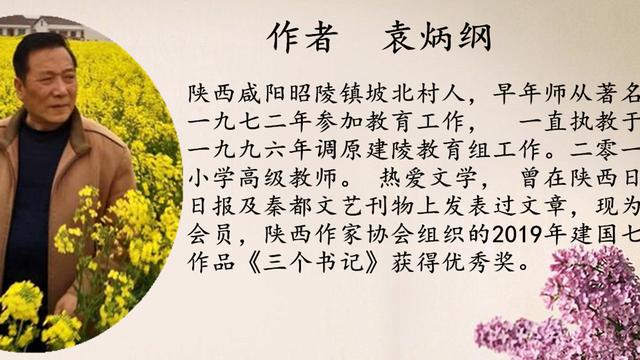 作者 袁炳纲
陕西咸阳昭陵镇坡北村人，早年师从著名
一九七二年参加教育工作， 一直执教于
一九九六年调原建陵教育组工作。二零一
小学高级教师。 热爱文学， 曾在陕西日
日报及秦都文艺刊物上发表过文章，现为
会员，陕西作家协会组织的2019年建国七
作品《三个书记》获得优秀奖。